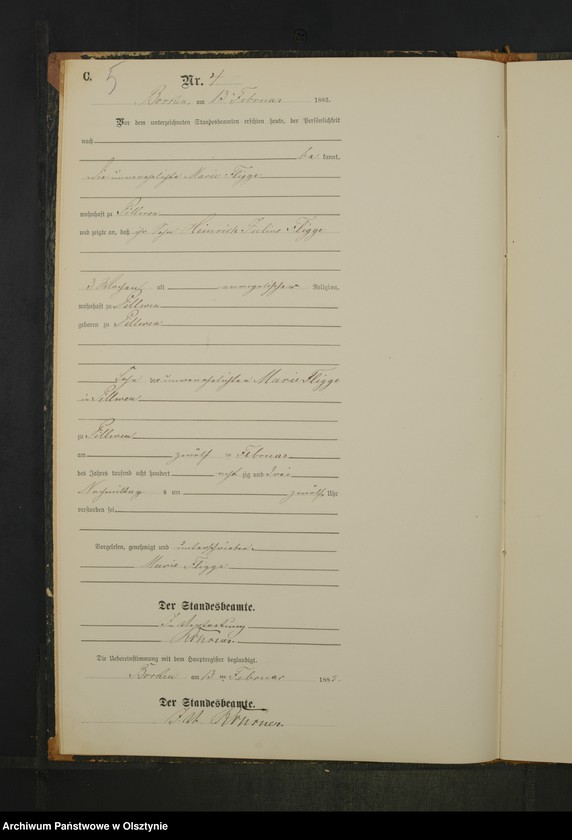 C. 5
Nr. 4
am 13ten Februar 1883.
Vor dem unterzeichneten Standesbeamten erschien heute, der Persönlichkeit
nach
bekannt,
die unverehelichte Marie Fligge
wohnhaft zu Pillwen
und zeigte an, daß ihr Sohn Heinrich Julius Fligge
3 Wochen alt evangelischer Religion,
wohnhaft zu Pillwen
geboren zu Pillwen
Sohn der unverehelichten Marie Fligge
in Pillwen
zu Pillwen
am zwölften Februar
des Jahres tausend acht hundert achtzig und drei
Nachmittags um zwölf Uhr
verstorben sei.
Vorgelesen, genehmigt und unterschrieben
Marie Fligge
Der Standesbeamte.
In Vertretung
Die Uebereinstimmung mit dem Hauptregister beglaubigt.
am 13ten Februar 1883.
Der Standesbeamte.
Archiwum Państwowe w Olsztynie